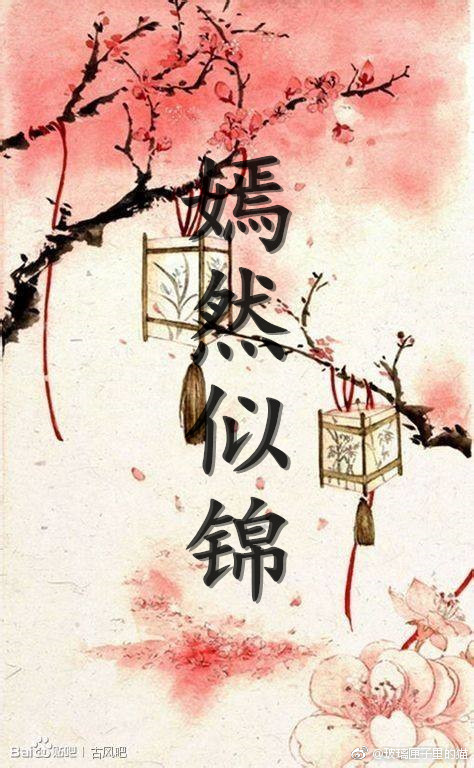 嫣然似锦
Baidu贴吧 | 古风吧
@玻璃匣子里的猫